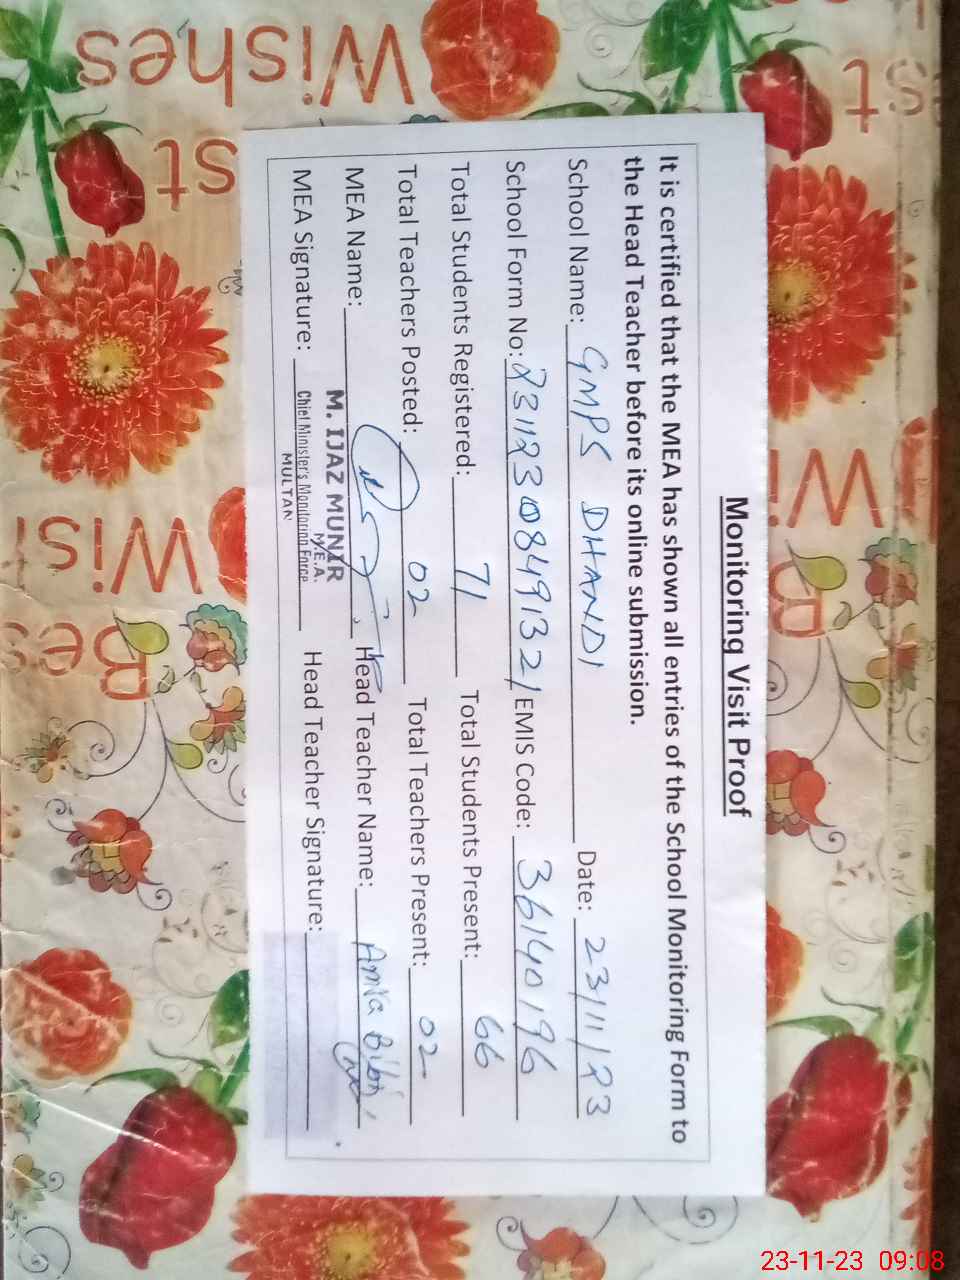 Monitoring Visit Proof
It is certified that the MEA has shown all entries of the School Monitoring Form to
the Head Teacher before its online submission.
School Name: GMPS DHANDI Date: 23/11/23
School Form No: 23112308491321 EMIS Code: 36140196
Total Students Registered: 71 Total Students Present: 66
Total Teachers Posted: 02 Total Teachers Present: 02
MEA Name: Head Teacher Name: Bibi
M. IJAZ MUNIR
M.E.A.
MEA Signature: Head Teacher Signature:
Chief Minister's Monitoring Force
MULTAN
Wishes
st
st
Wi
Wis
Bes
B
23-11-23 09:08